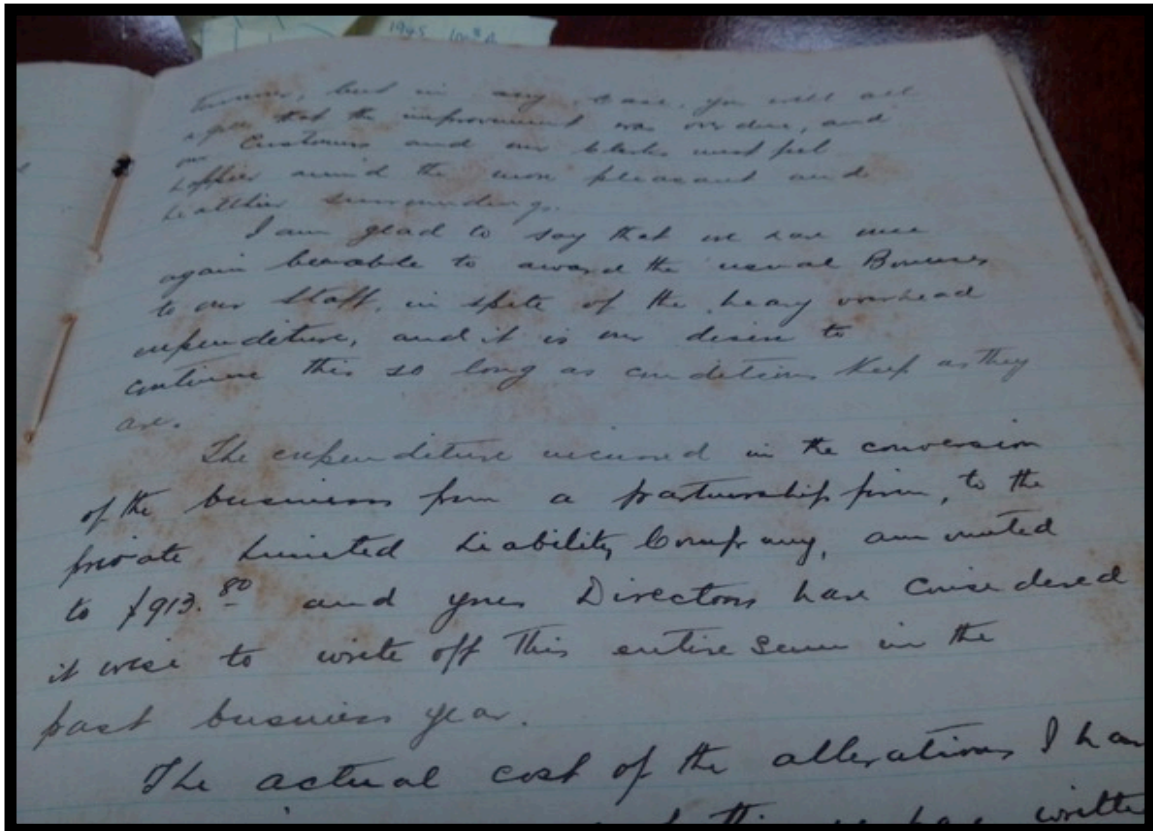 1945
but in any case, you will all
agree that the improvement was overdue, and
our Customers and our Clerks must feel
happier amid the more pleasant and
healthier surroundings.
I am glad to say that we have once
again been able to award the usual Bonuses
to our Staff, in spite of the heavy overhead
expenditure, and it is our desire to
continue this so long as conditions keep as they
are.
The expenditure incurred in the conversion
of the business from a partnership firm, to the
private Limited Liability Company, amounted
to $913.80 and your Directors have considered
it wise to write off this entire sum in the
past business year.
The actual cost of the alterations I have
this we have written